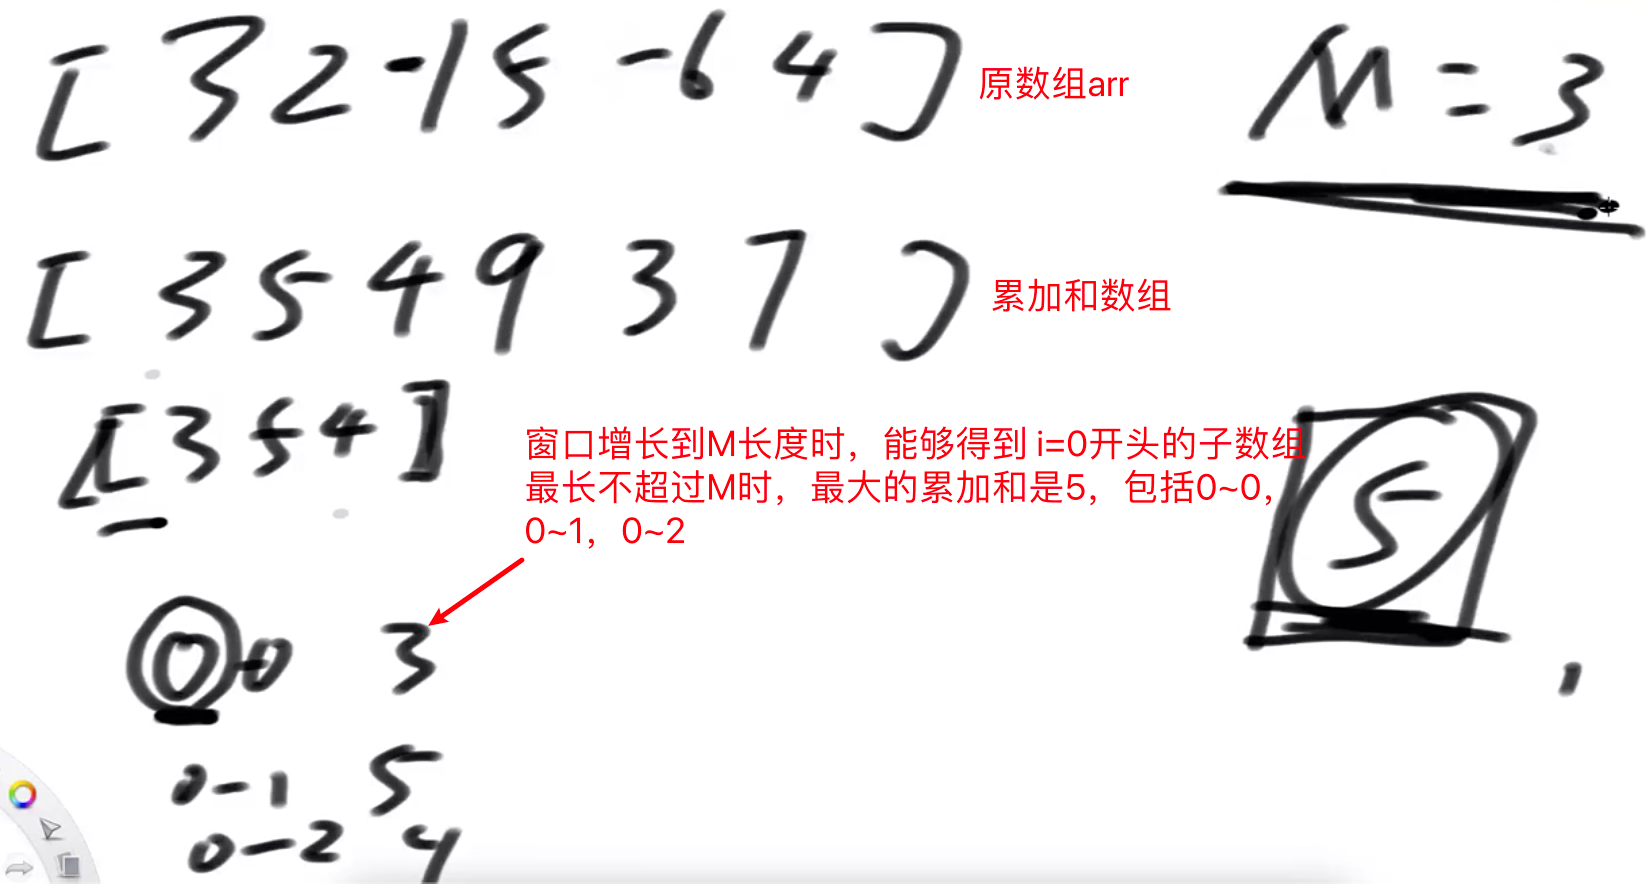 [ 3 2 -1 5 -6 4 ] 原数组arr M = 3
[ 3 5 4 9 3 7 ] 累加和数组
[ 3 5 4 ]
窗口增长到M长度时，能够得到 i=0开头的子数组
最长不超过M时，最大的累加和是5，包括0~0，
0~1，0~2
5
0-0 3
0-1 5
0-2 4